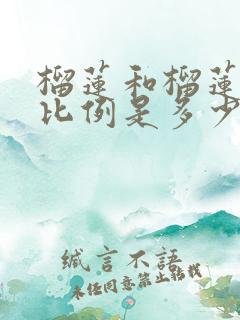 榴莲和榴莲
比例是多少
缄言不语
未经同意禁止转载